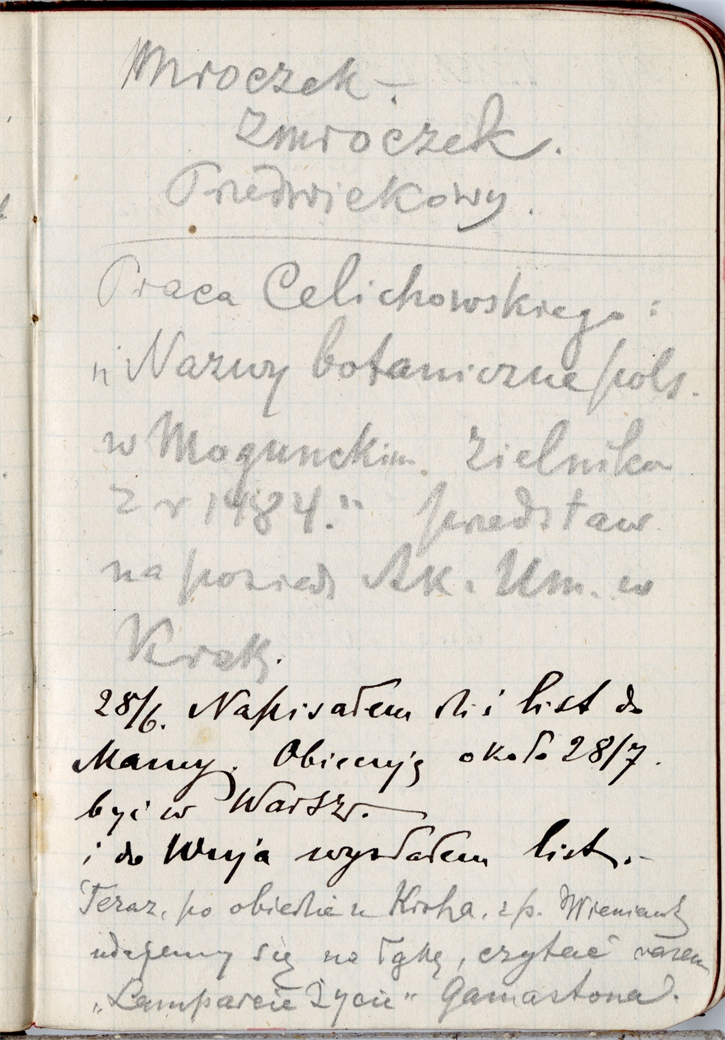 Mroczek –
Zmroczek.
Przedwiekowy.
Praca Celichowskiego:
„Nazwy botaniczne pols.
w Mogunckim. Zielniku
z r 1484." przedstaw
na posied Ak. Um. w
Krak.
28/6. Napisałem dziś list do
Mamy. Obiecuję około 28/7.
być w Warsz. –
i do Wuja wysłałem list. –
Teraz, po obiedzie u , z p.
udajemy się na łąkę, czytać razem
„Lamparcie Życie" Gamastona.